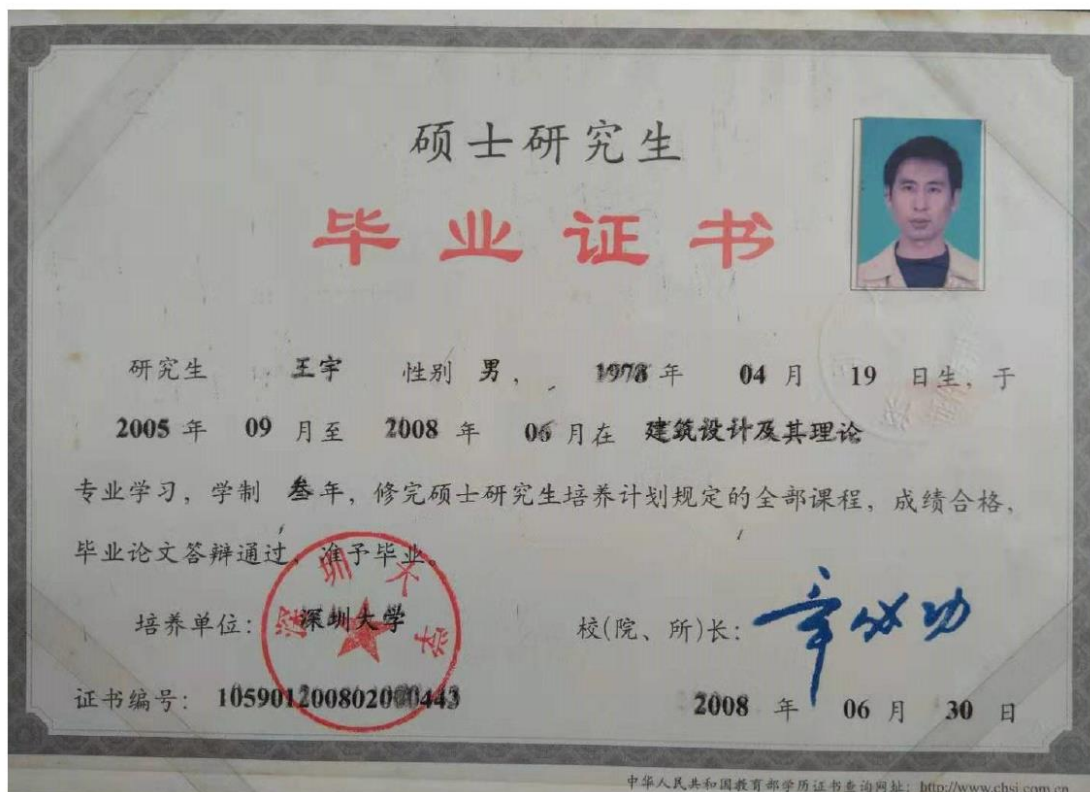 硕士研究生
毕业证书
研究生 王宇 性别 男， 1978年 04月 19日生，于
2005年 09月至 2008年 06月在 建筑设计及其理论
专业学习，学制 叁年，修完硕士研究生培养计划规定的全部课程，成绩合格，
毕业论文答辩通过，准予毕业。
深圳大学
培养单位：深圳大学 校(院、所)长：章必功
证书编号：105901200802000443 2008年 06月 30日
中华人民共和国教育部学历证书查询网址：http://www.chsi.com.cn